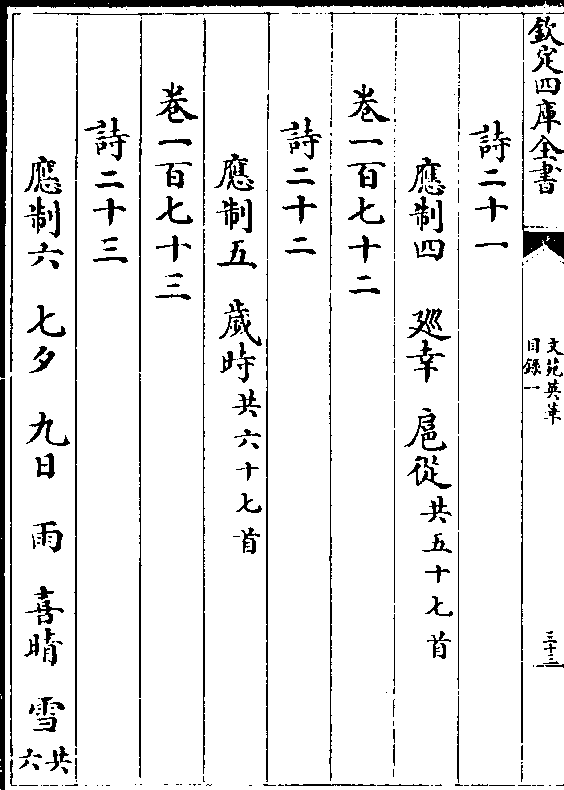 欽定四庫全書
文苑英華
目錄一
三十三
詩二十一
應制四 廵幸 扈從共五十七首
卷一百七十二
詩二十二
應制五 歲時共六十七首
卷一百七十三
詩二十三
應制六 七夕 九日 雨 喜晴 雪共六